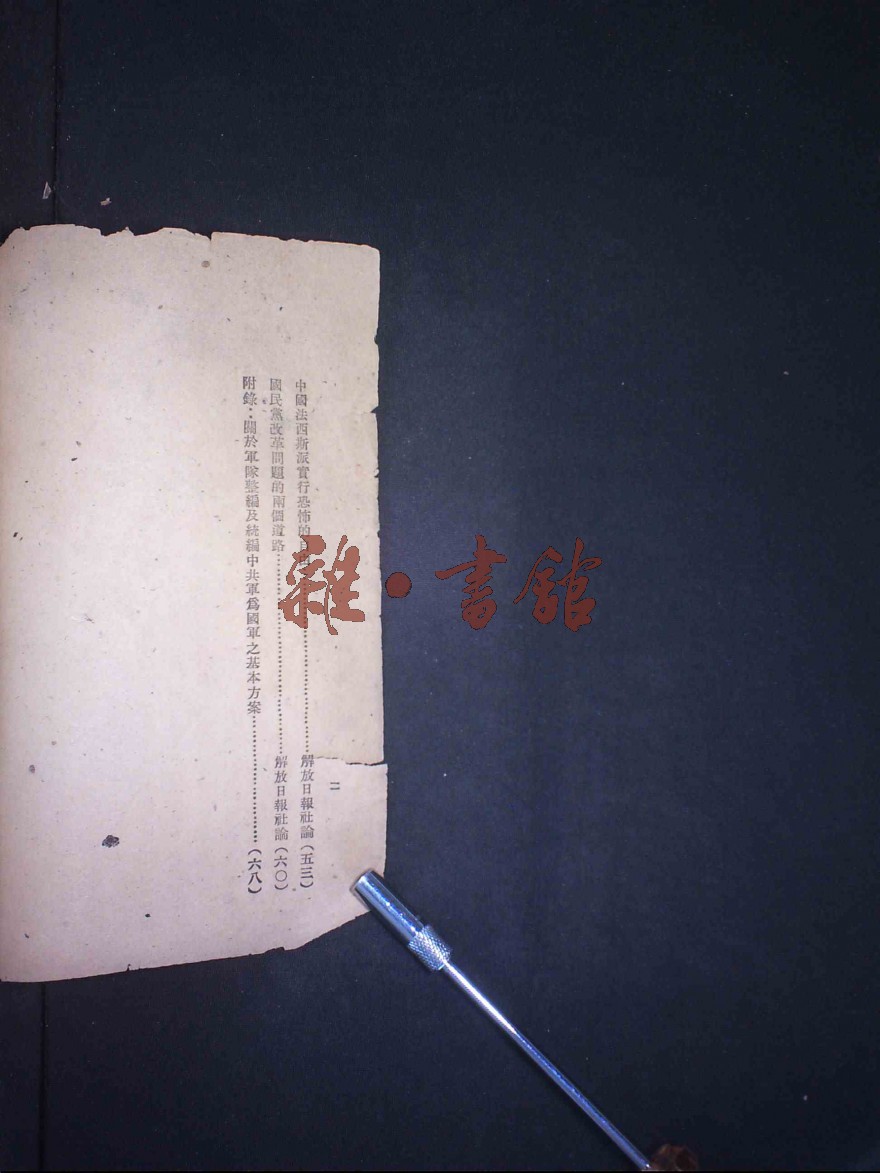 中國法西斯派實行恐怖的自由…………………………解放日報社論(五三)
國民黨改革問題的兩個道路…………………………解放日報社論(六〇)
附錄：關於軍隊整編及統編中共軍爲國軍之基本方案…………………(六八)
二
雜·書館